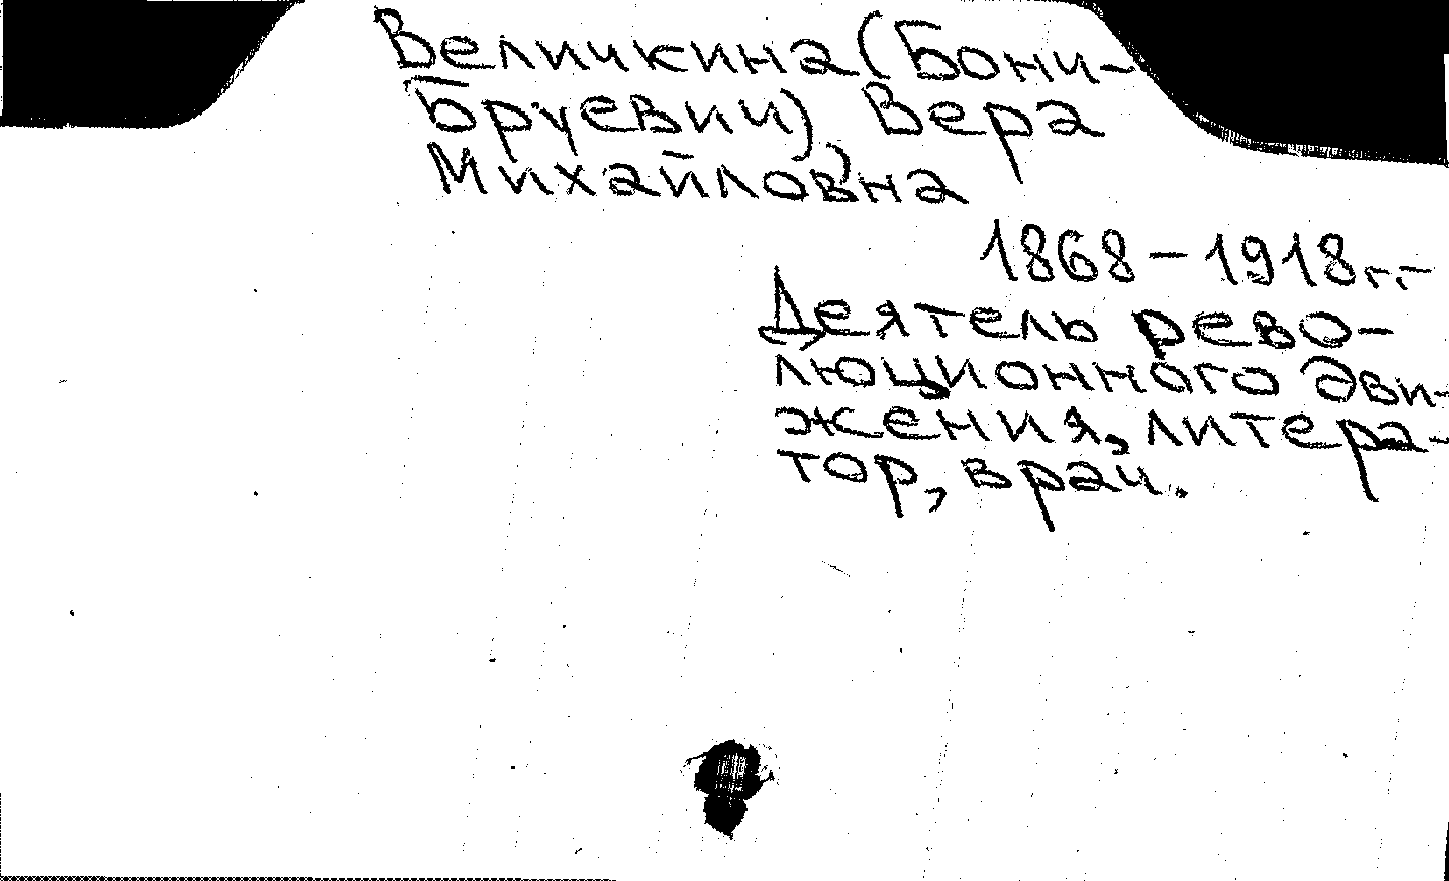 Величкина (Бонч-
Бруевич), Вера
Михайловна
1868-1918г.г.-
Деятель рево-
люционного дви-
жения, литера-
тор, врач.